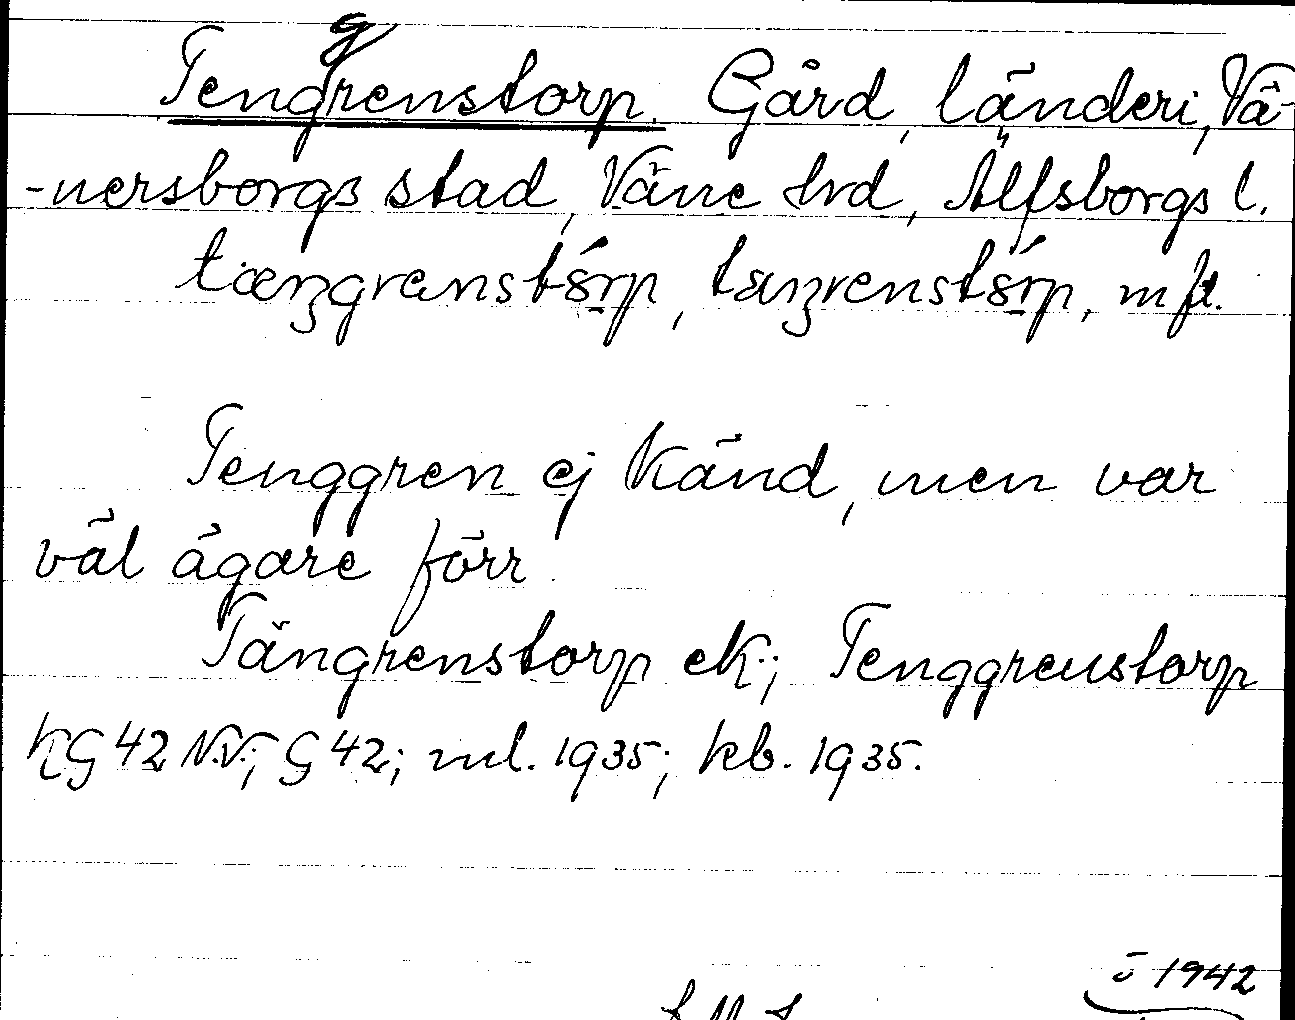 Tenggrenstorp. Gård, länderi, Vä-
-nersborgs stad, Väne hrd, Älfsborgs l.
Tenggren ej känd, men var
väl ägare förr.
Tängrenstorp ek.; Tenggrenstorp
KG 42 N.V.; G 42; ml. 1935; kb. 1935.
ö 1942